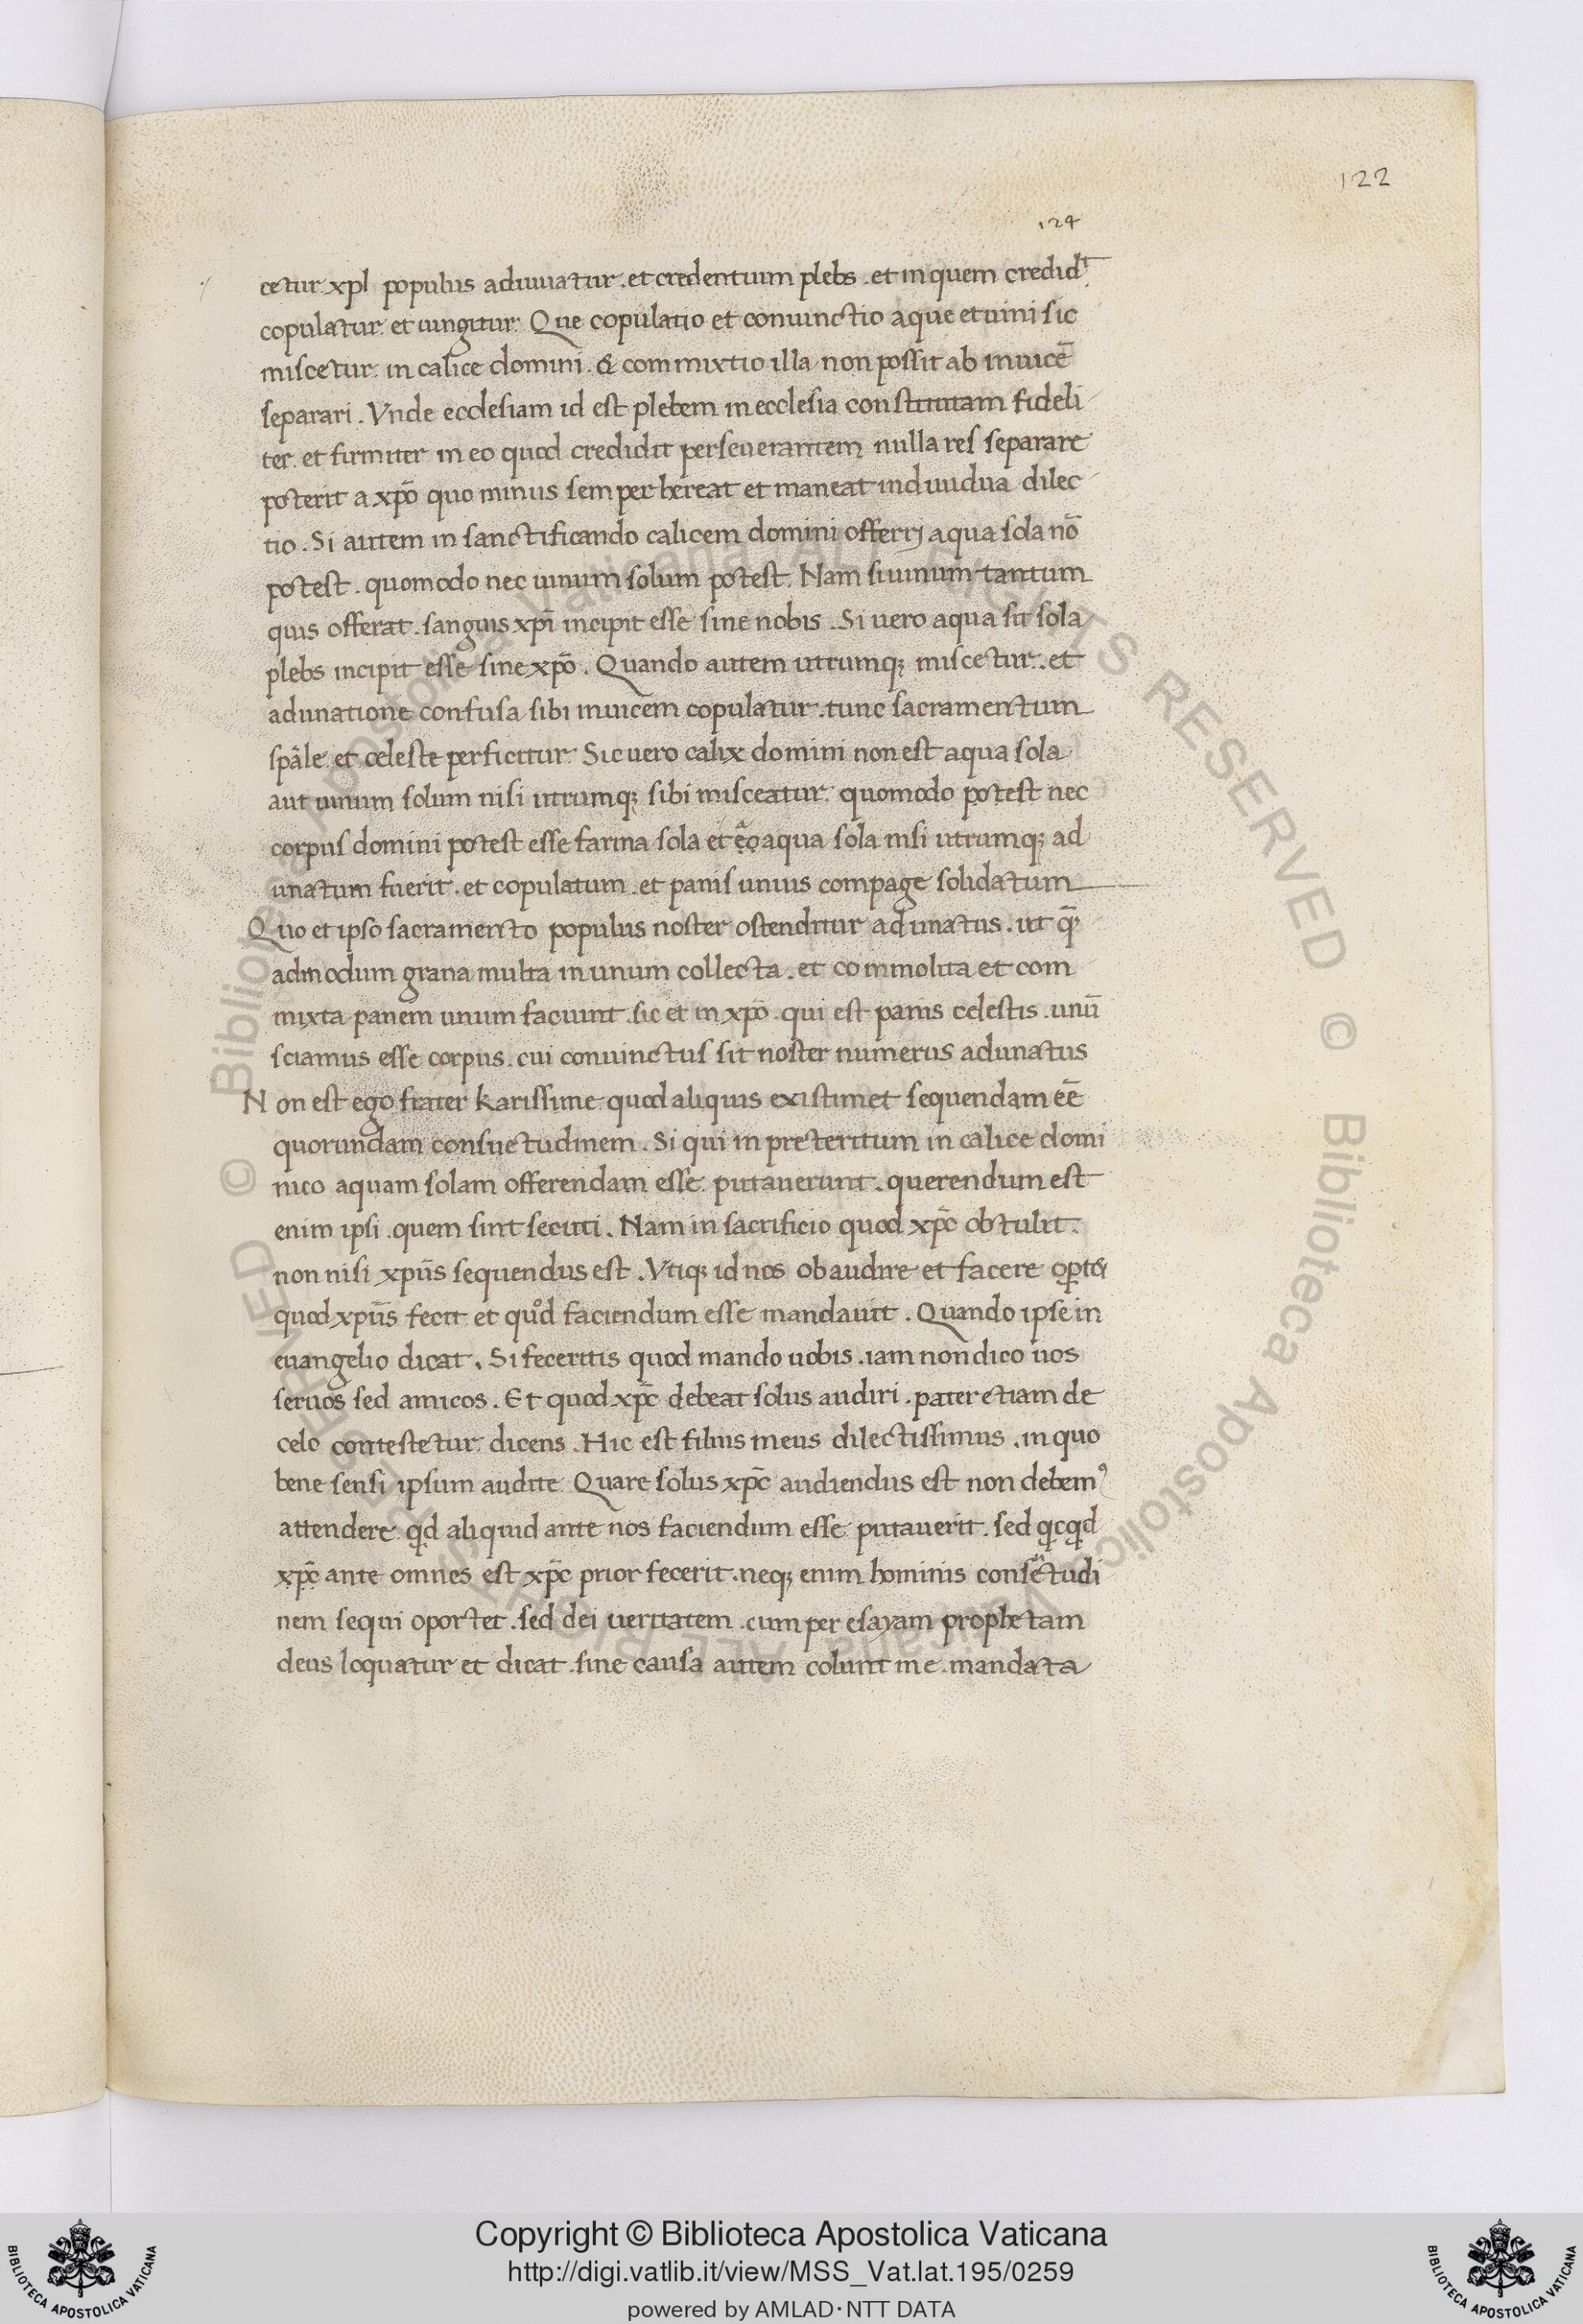 122
124
cetur. xp̄i populus adunatur. et credentium plebs. et in quem credidᵗ.
copulatur. et iungitur. Que copulatio et coniunctio aque et uini sic
miscetur. in calice domini. & commixtio illa non possit ab inuicē
separari. Vnde ecclesiam id est plebem in ecclesia constitutam fideli
ter. et firmiter in eo quod credidit perseuerantem nulla res separare
poterit a xp̄o quo minus semper hereat et maneat indiuidua dilec
tio. Si autem in sanctificando calicem domini offerrj aqua sola nō
potest. quomodo nec uinum solum potest. Nam si uinum tantum
quis offerat. sanguis xp̄i incipit esse sine nobis. Si uero aqua sit sola
plebs incipit esse sine xp̄o. Quando autem utrumq; miscetur. et
adunatione confusa sibi inuicem copulatur. tunc sacramentum
spāle. et celeste perficitur. Sic uero calix domini non est aqua sola
aut uinum solum nisi utrumq; sibi misceatur. quomodo potest nec
corpus domini potest esse farina sola et aqua sola nisi utrumq; ad
unatum fuerit. et copulatum. et panis unius compage solidatum
Quo et ipso sacramento populus noster ostenditur adunatus. ut q̄
admodum grana multa in unum collecta. et commolita et com
mixta panem unum faciunt. sic et in xp̄o. qui est panis celestis. unū
sciamus esse corpus. cui coniunctus sit noster numerus adunatus
Non est ego frater karissime quod aliquis existimet sequendam eē
quorundam consuetudinem. Si qui in preteritum in calice domi
nico aquam solam offerendam esse putauerunt. querendum est
enim ipsi. quem sint secuti. Nam in sacrificio quod xp̄c obtulit.
non nisi xp̄us sequendus est. Vtiq; id nos obaudire et facere oportꝫ
quod xp̄us fecit et quod faciendum esse mandauit. Quando ipse in
euangelio dicat. Si feceritis quod mando uobis. iam non dico uos
seruos sed amicos. Et quod xp̄c debeat solus audiri. pater etiam de
celo contestetur. dicens. Hic est filius meus dilectissimus. in quo
bene sensi ipsum audite. Quare solus xp̄c audiendus est non debemꝰ
attendere. qd aliquid ante nos faciendum esse putauerit. sed qcqd
xp̄c ante omnes est xp̄c prior fecerit. neq; enim hominis consuetudi
nem sequi oportet. sed dei ueritatem. cum per esayam prophetam
deus loquatur et dicat. sine causa autem colunt me. mandata
Copyright © Biblioteca Apostolica Vaticana
http://digi.vatlib.it/view/MSS_Vat.lat.195/0259
powered by AMLAD·NTT DATA
BIBLIOTECA APOSTOLICA VATICANA
BIBLIOTECA APOSTOLICA VATICANA